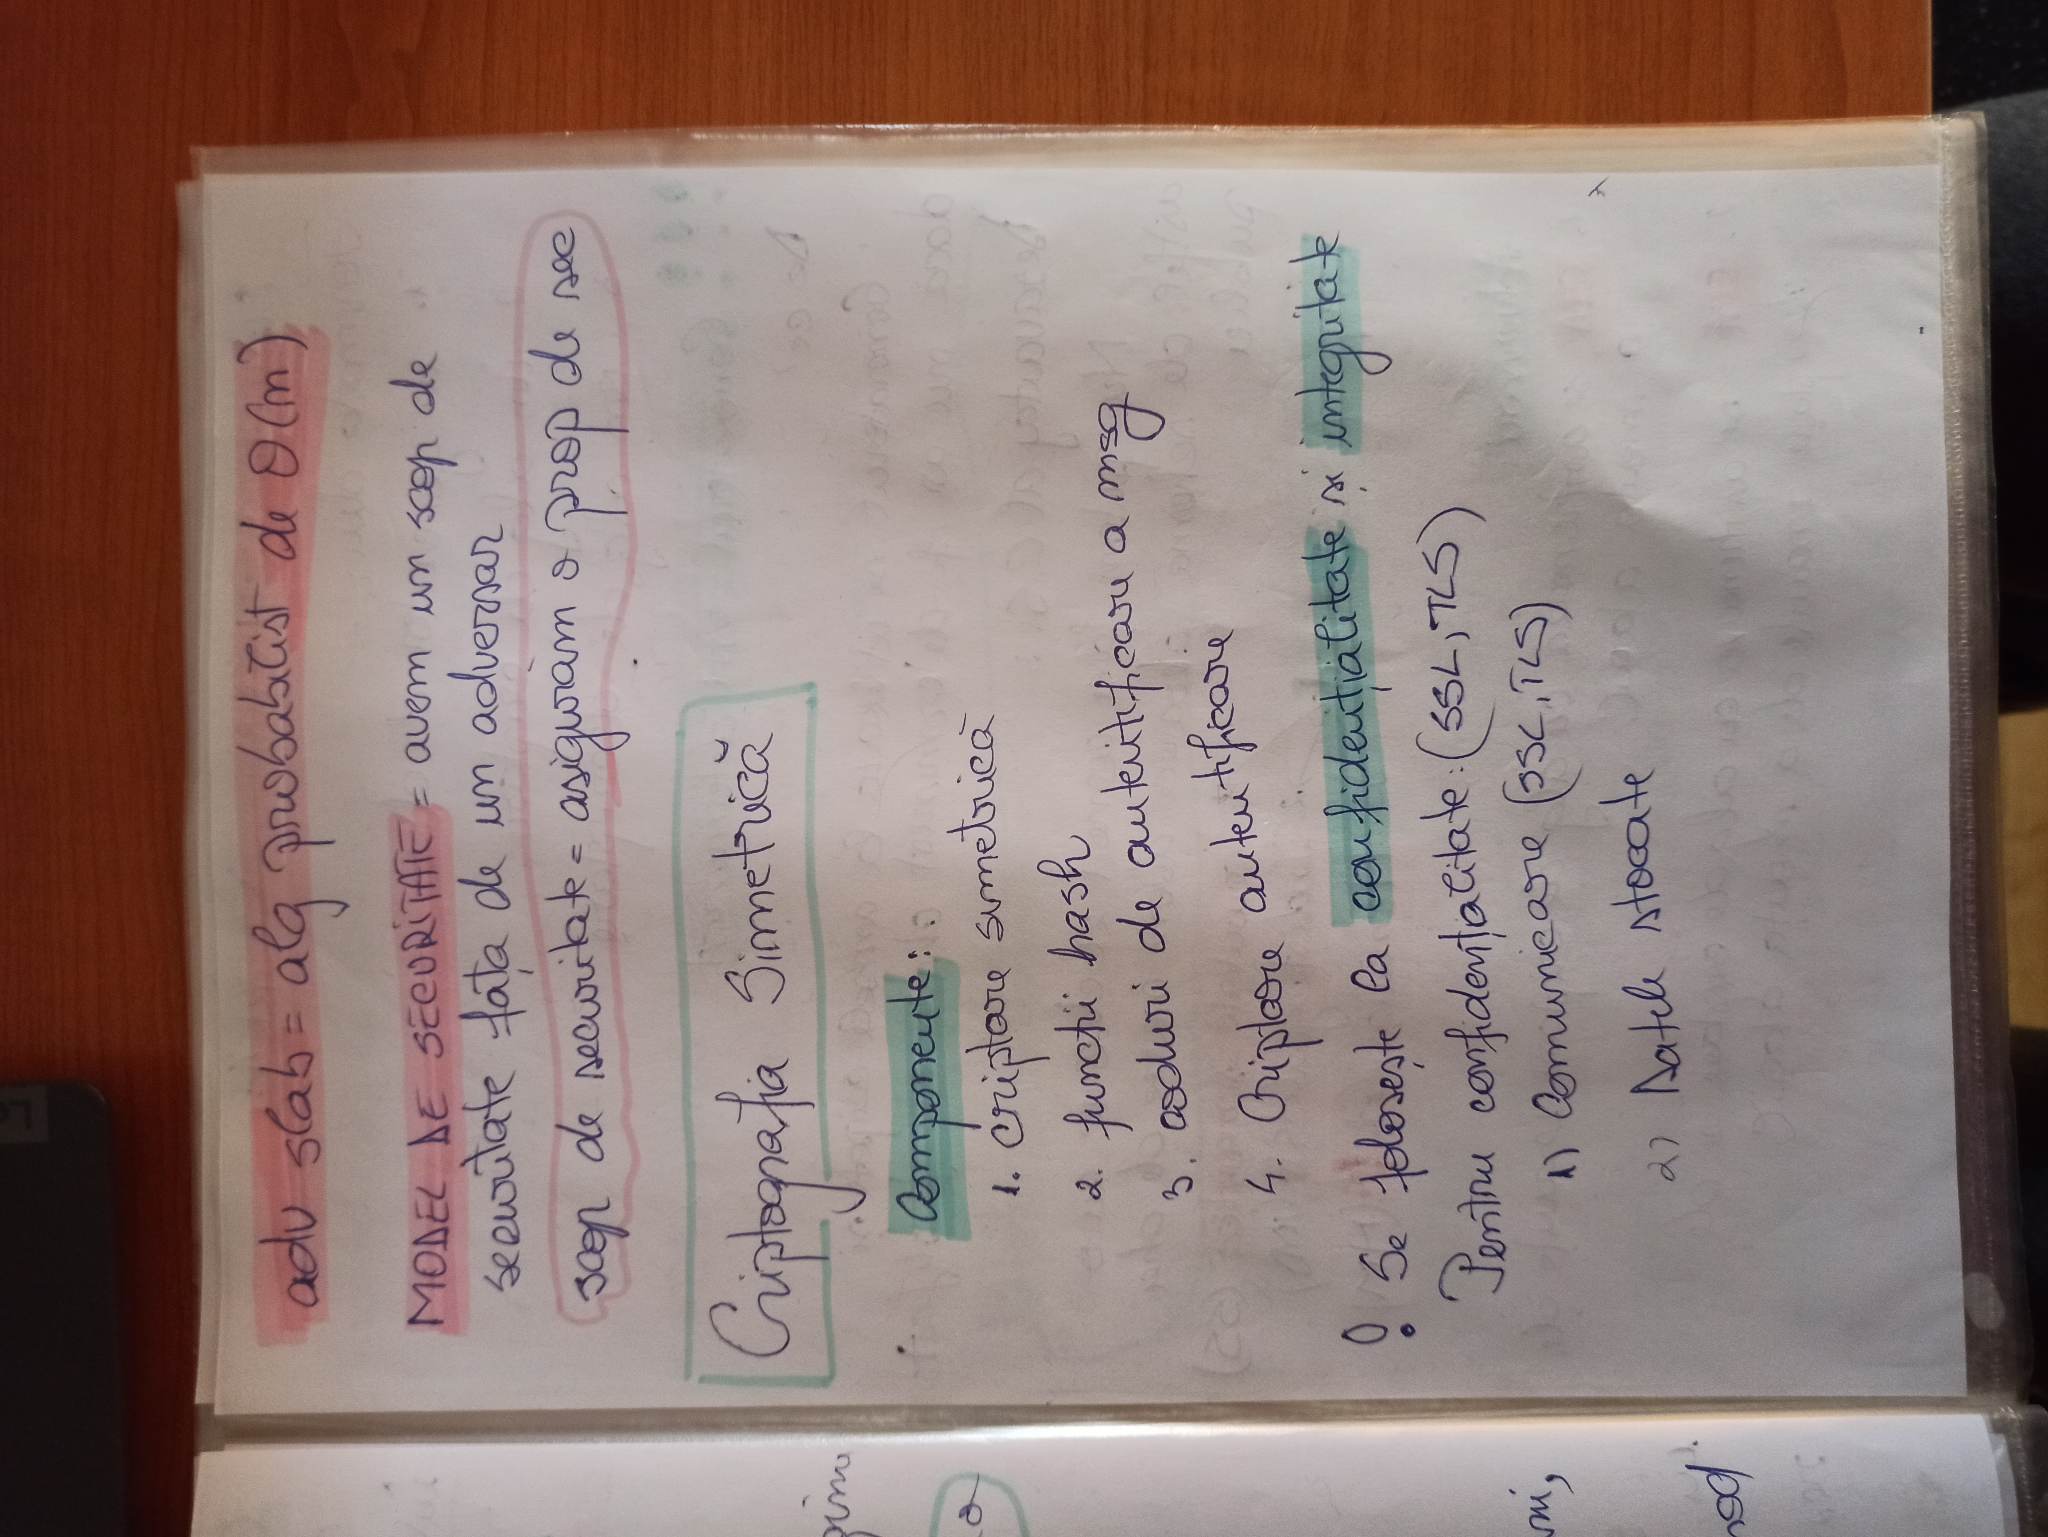 adv slab = alg probabilist de O(n)
MODEL DE SECURITATE = avem un scop de
securitate față de un adversar
scop de securitate = asigurăm o prop de sec
Criptografia Simetrică
Componente:
1. Criptare simetrică
2. funcții hash
3. coduri de autentificare a msg
4. Criptare autentificare
Se folosește la confidențialitate și integritate
Pentru confidențialitate: (SSL, TLS)
1) Comunicare (SSL, TLS)
2) Datele stocate